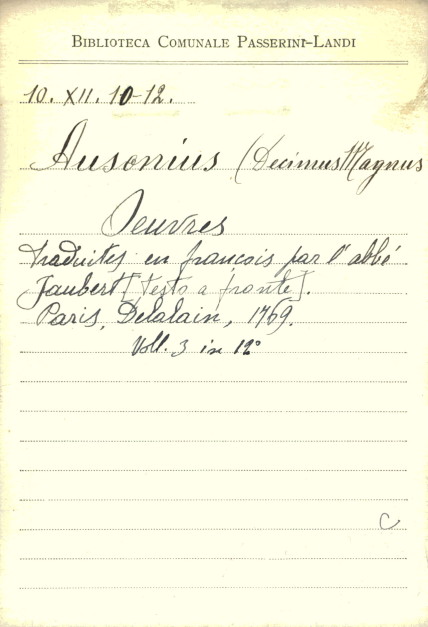 BIBLIOTECA COMUNALE PASSERINI-LANDI
10. XII. 10-12.
Ausonius (Decimus Magnus
Oeuvres
traduites en françois par l'abbé
Jaubert [testo a fronte].
Paris, Delalain, 1769.
Voll. 3 in 12°
C